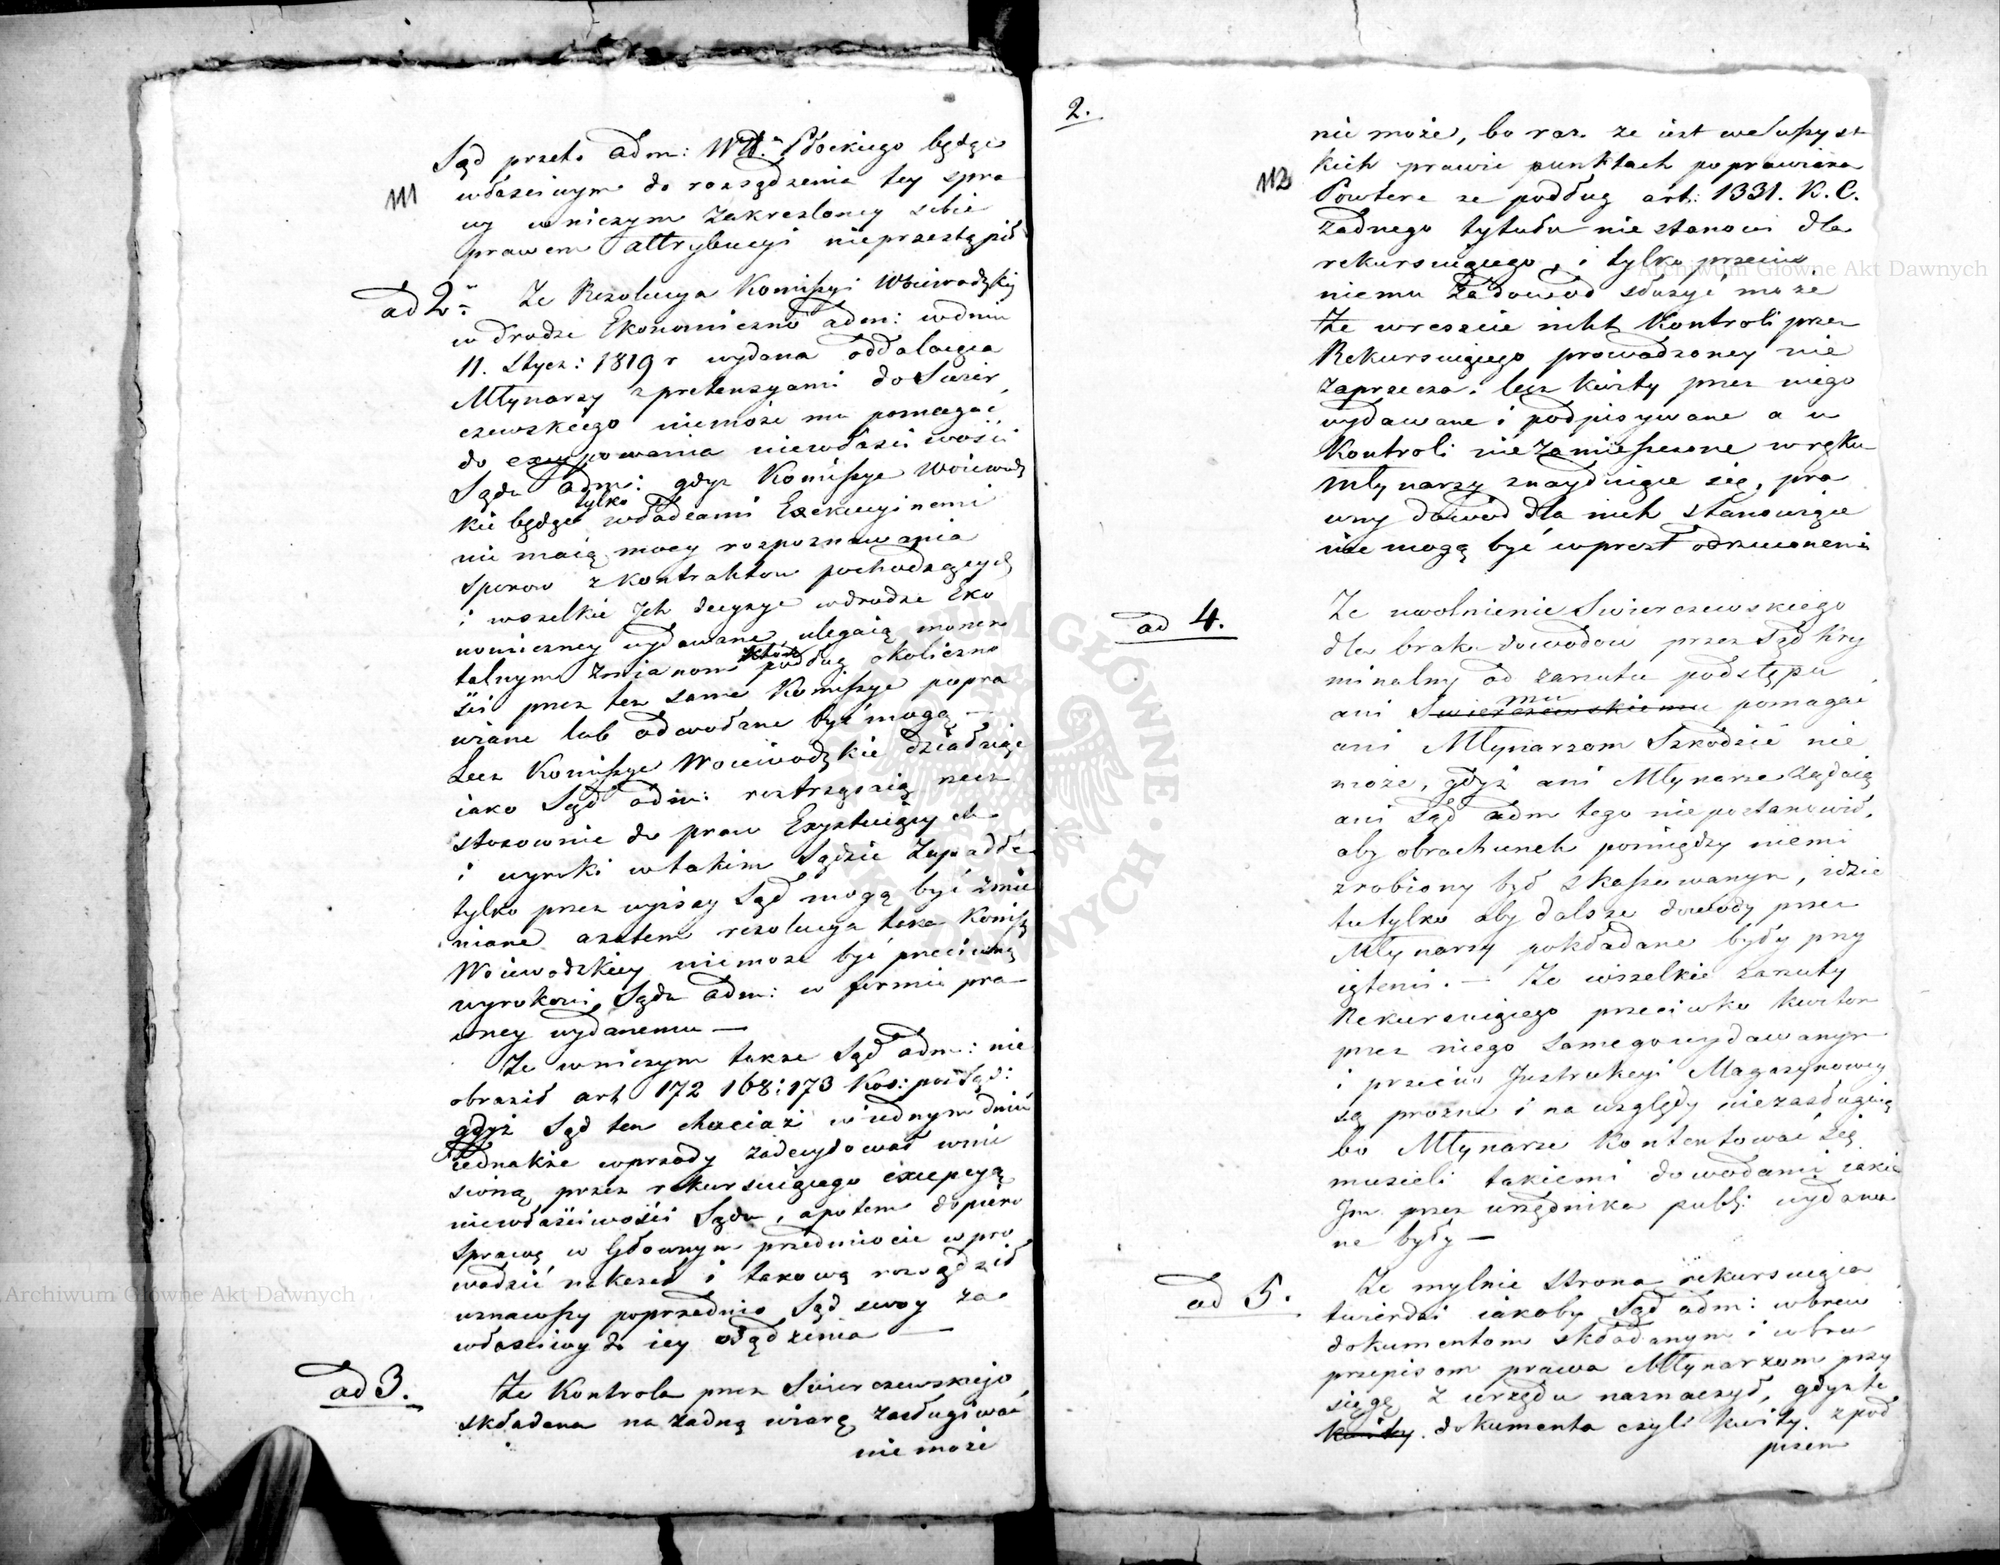 111
Sąd przeto adm: Wdt. Płockiego będąc
właściwym do rozsądzenia tey spra
wy w niczym zakreśloney sobie
prawem attrybucyi nieprzestąpił
ad 2o Że Rezolucya Kommissyi Woiewodzkiey
w drodze Ekonomiczno adm: w dniu
11. Stycz: 1819 r wydana oddalaiąca
Młynarzy z pretensyami do Swier
czewskiego niemoże mu pomagać
do excypowania niewłaści wości
Sądu adm: gdyż Komissye Woiewodz
kie będąc tylko władzami Exekucyinemi
nie maią mocy rozpoznawania
sporow z kontraktow pochodzących
i wszelkie Ich decyzye w drodze Eko
nomiczney wydawane, ulegaią momen
talnym zmianom podług okoliczno
ści przez też same Komissye popra
wiane lub odwołane być mogą —
Lecz Komissye Woiewodzkie działaiąc
iako Sąd adm: roztrząsaią rzecz
stosownie do praw Exystuiących
i wyroki w takim Sądzie zapadłe
tylko przez wyższy Sąd mogą być zmie
niane a zatem rezolucya taka Komissyi
Woiewodzkiey niemoże być przeciwną
wyrokowi Sądu adm: w formie pra
wney wydanemu —
Że w niczym także Sąd adm: nie
obraził art 172 168: 173 Kod: post Sąd:
gdyż Sąd ten chociaż w iednym dniu
iednakże wprzody zadecydował wnie
sioną przez rekursuiącego excepcyą
niewłaściwości Sądu, a potem dopiero
Sprawę w Głownym przedmiocie wpro
wadzić nakazał i takową rozsądził
uznawszy poprzednio Sąd swoy za
właściwy do iey osądzenia —
ad 3. Że Kontrola przez Swierczewskiego
składana na żadną wiarę zasługiwać
nie może
2.
112
nie może, bo raz że iest we wszyst
kich prawie punktach poprawiana
Powtore że podług art: 1331. K. C.
żadnego tytułu nie stanowi dla
rekursuiącego, i tylko przeciw
niemu za dowod służyć może
Że wreszcie nikt Kontroli przez
Rekursuiącego prowadzoney nie
zaprzecza: lecz kwity przez niego
wydawane i podpisywane a w
Kontroli nie zamieszczone w ręku
młynarzy znayduiące się, pra
wny dowod dla nich stanowiące
nie mogą być wprost odrzucone
ad 4. Że uwolnienie Swierczewskiego
dla braku dowodow przez Sąd Kry
minalny od zarzutu podstępu
ani Swierczewskiemu mu pomagać
ani Młynarzom Szkodzić nie
może, gdyż ani Młynarze żądaią
ani Sąd adm tego niepostanowił,
aby obrachunek pomiędzy niemi
zrobiony był skassowanym, idzie
tu tylko aby dalsze dowody przez
Młynarzy pokładane były przy
iętemi. — Że wszelkie zarzuty
Rekursuiącego przeciwko kwitom
przez niego samego wydawanym
i przeciw Instrukcyi Magazynowey
są prożne i na względy niezasługuią
bo Młynarze kontentować się
musieli takiemi dowodami iakie
Im przez urzędnika publ: wydawa
ne były —
ad 5. Że mylnie strona rekursuiąca
twierdzi iakoby Sąd adm: wbrew
dokumentom składanym i wbrew
przepisom prawa Młynarzom przy
sięgę z urzędu naznaczył, gdyż te
kwity dokumenta czyli kwity z pod
pisem
Archiwum Główne Akt Dawnych
Archiwum Główne Akt Dawnych